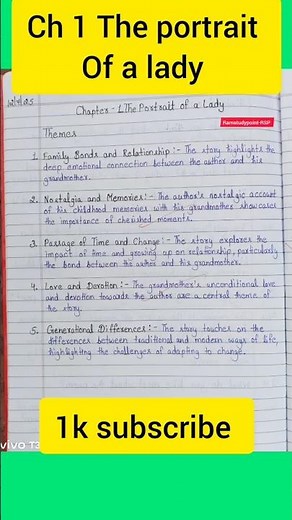 Ch 1 The portrait
Of a lady
12/4/25
Chapter-1 The Portrait of a Lady
Ramstudypoint-RSP
Themes
1. Family Bonds and Relationship :- The story highlights the
deep emotional connection between the author and his
grandmother.
2. Nostalgia and Memories:- The author's nostalgic account
of his childhood memories with his grandmother showcases
the importance of cherished moments.
3. Passage of Time and Change:- The story explores the
impact of time and growing up on relationship, particularly
the bond between the author and his grandmother.
4. Love and Devotion :- The grandmother's unconditional love
and devotion towards the author are a central theme of
the story.
5. Generational Differences :- The story touches on the
differences between traditional and modern ways of life,
highlighting the challenges of adapting to change.
1k subscribe
vivo T3